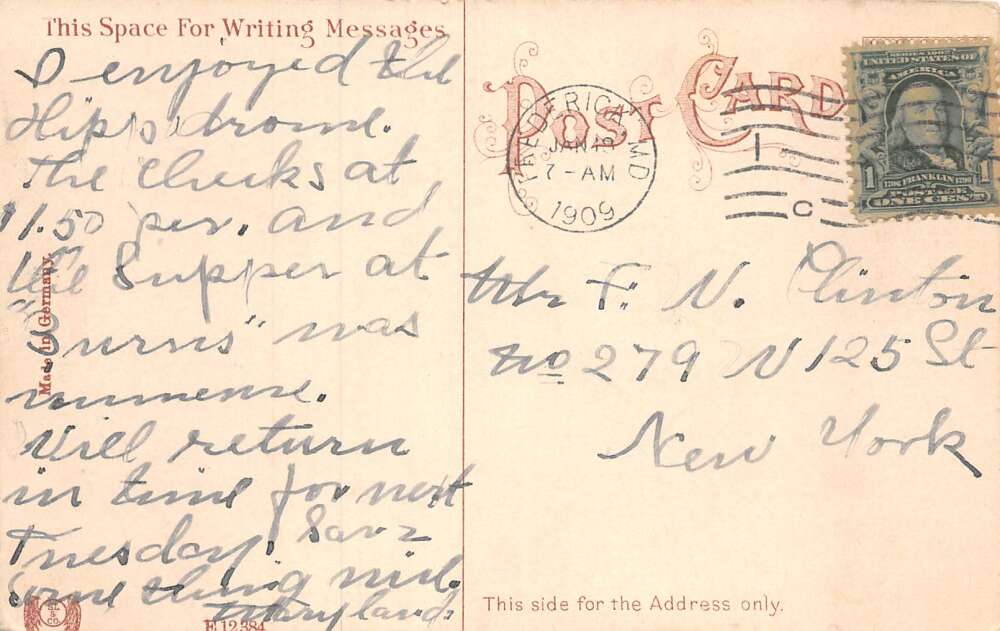 This Space For Writing Messages
I enjoyed the
Hippodrome.
The Checks at
11.50 per. and
the Supper at
"Burns" was
immense.
Will return
in time for next
Tuesday. Save
Some thing
Maryland.
Made in Germany.
SL & CO
E 12384
POST CARD
FREDERICK, MD
JAN 15
7-AM
1909
1
C
SERIES 1902
UNITED STATES OF
AMERICA
1 1
1706 FRANKLIN 1790
POSTAGE
ONE CENT
Mr F. N. Clinton
No 279 W 125 St
New York
This side for the Address only.